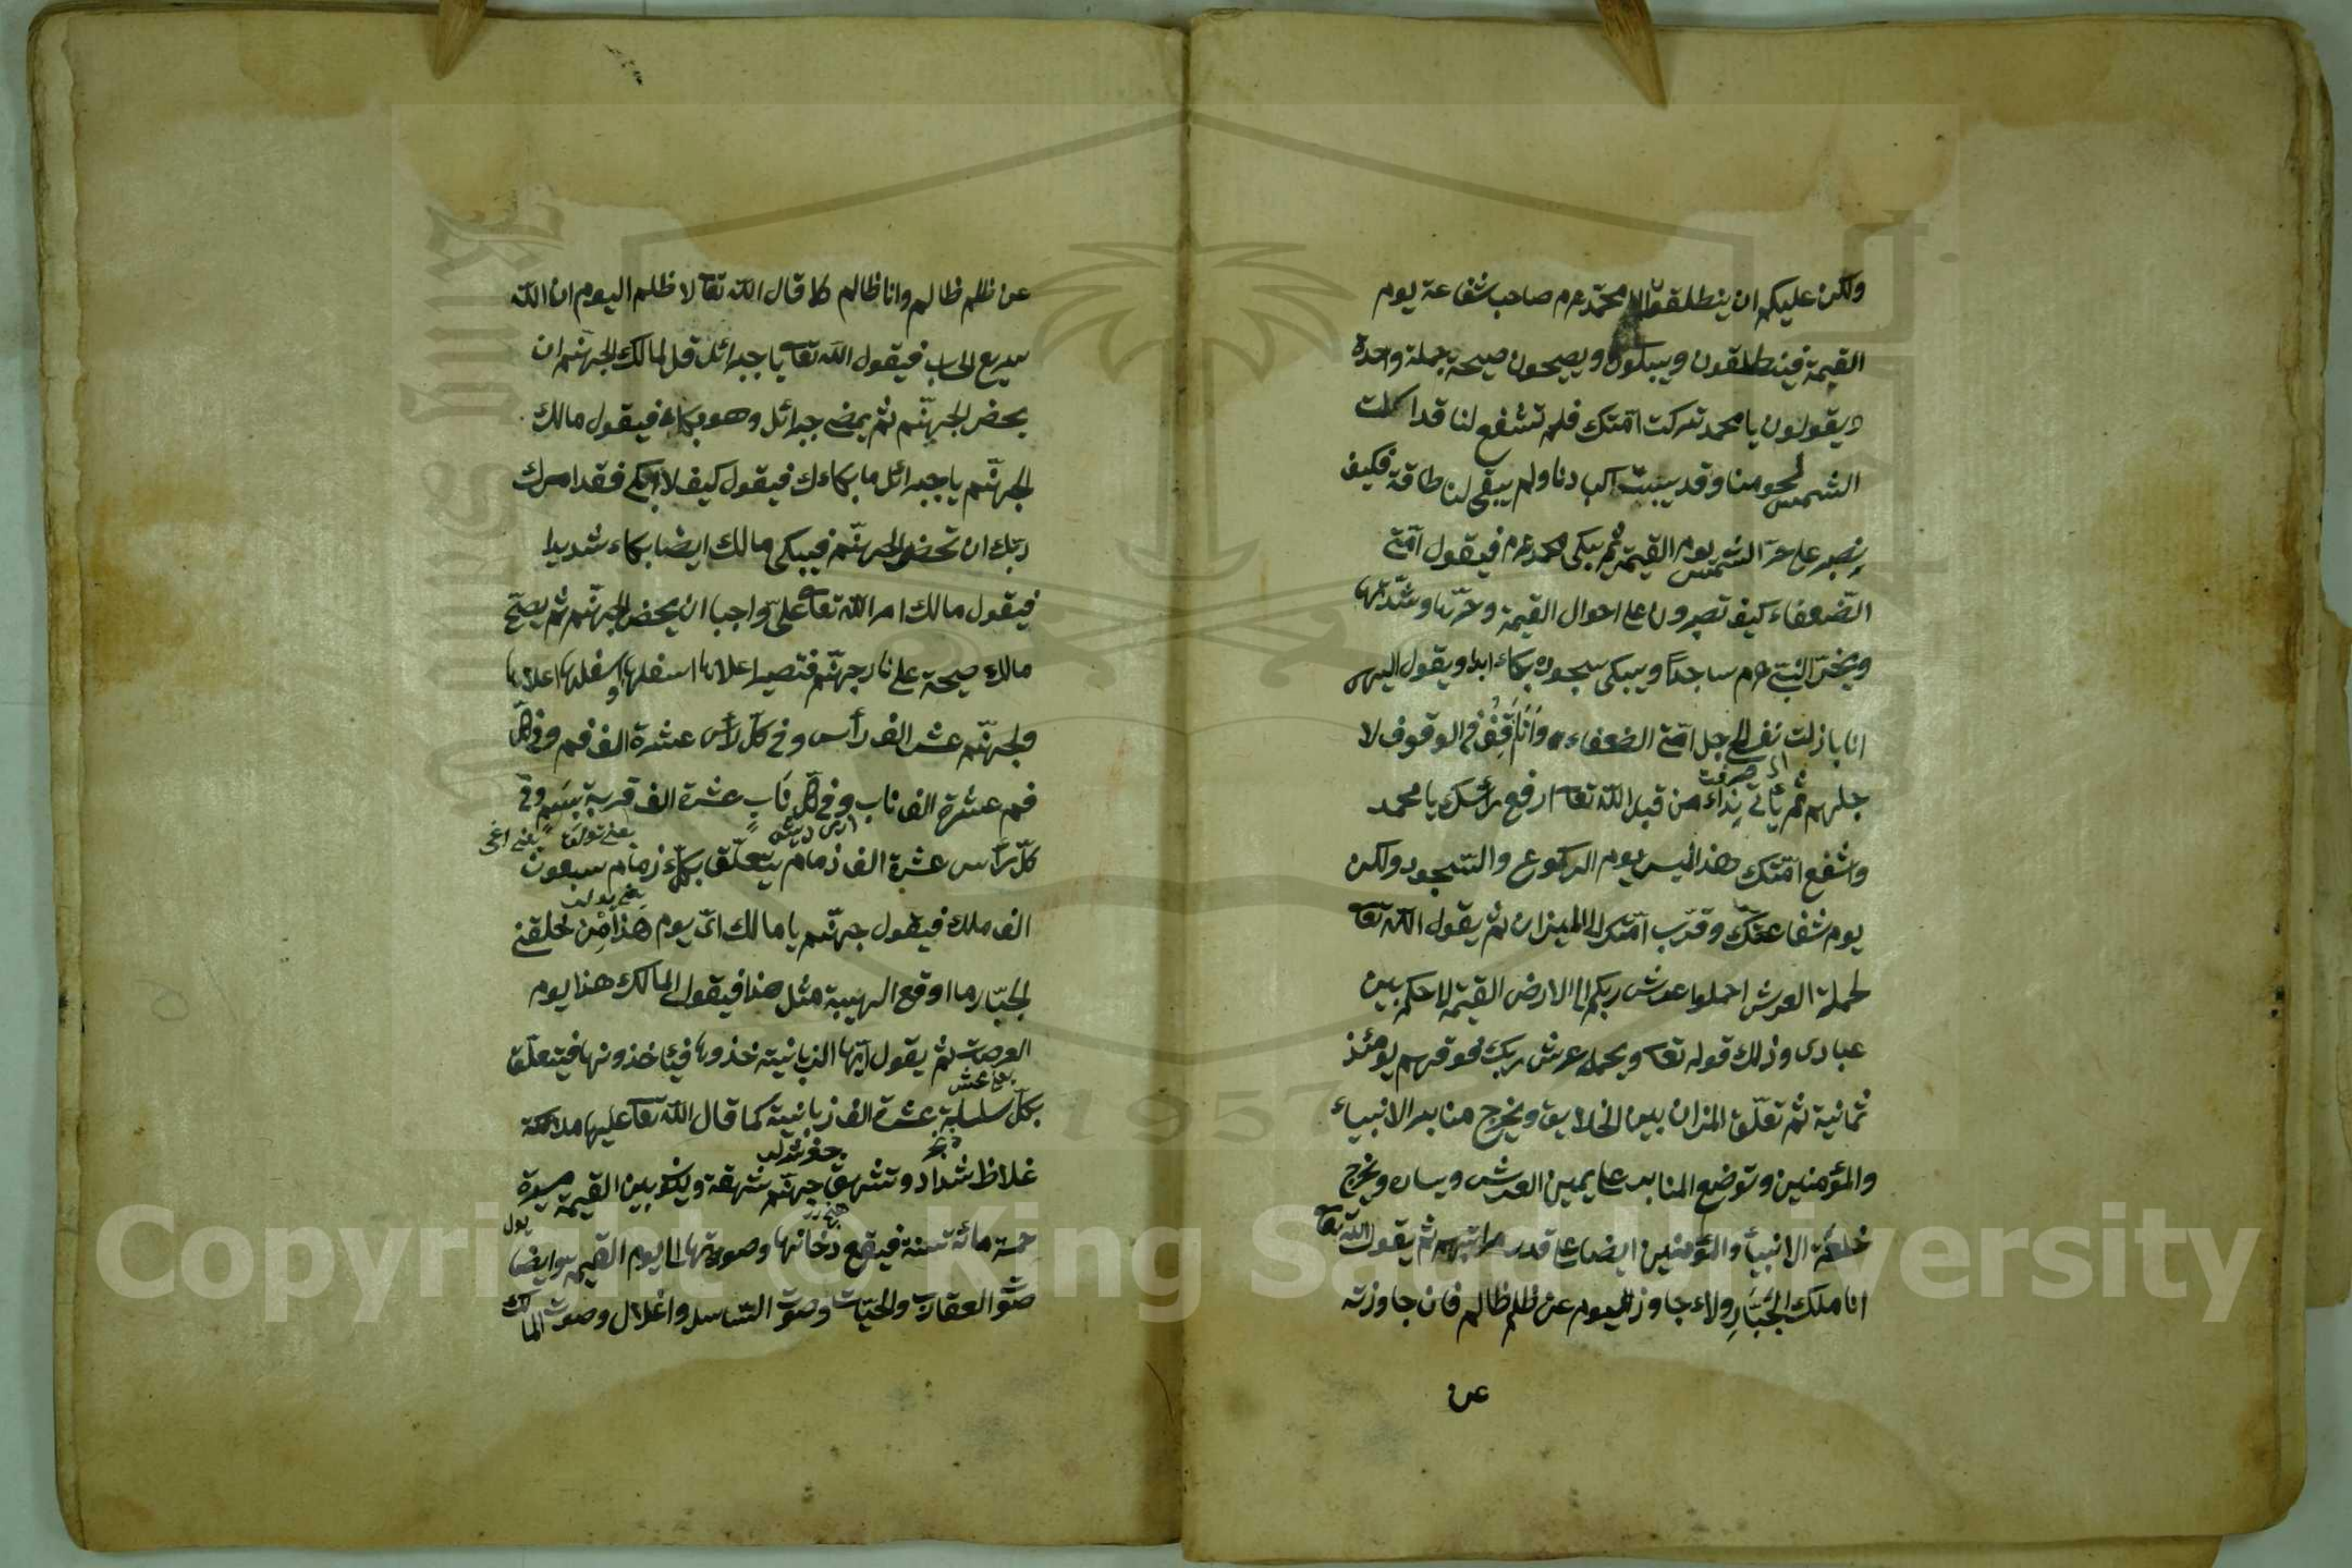 ولكن عليكم ان ينطلقوا الى محمد عم صاحب شفاعة يوم
القيمة فينطلقون ويبكون ويصيحون صيحة جملة واحدة
ويقولون يا محمد تركت امتك فلم تشفع لنا قد اكلت
الشمس لحومنا وقد يبست اكبادنا ولم يبقى لنا طاقة فكيف
نصبر على حر الشمس يوم القيمة ثم يبكى محمد عم فيقول امتى
الضعفاء كيف تصبرون على احوال القيمة وحرها وشدتها
ويخر النبى عم ساجدا ويبكى سجوده بكاء ابدا ويقول الهى
انا بازلت نفسى لاجل امتى الضعفاء وانا فى الوقوف لا
اى صرفت
جلهم ثم يأتى نداء من قبل الله تعا ارفع رأسك يا محمد
واشفع امتك هذا ليس يوم الركوع والسجود ولكن
يوم شفاعتك وقرب امتك الى الميزان ثم يقول الله تعا
لحملة العرش احملوا عرش ربكم الى الارض القيمة لاحكم بين
عبادى وذلك قوله تعا ويحمل عرش ربك فوقهم يومئذ
ثمانية ثم تعلق المزان بين الخلايق ويخرج منابر الانبياء
والمؤمنين وتوضع المنابر على يمين العرش ويساره ويخرج
خلعة الانبيأ والمؤمنين ايضا على قدر مراتبهم ثم يقول الله تعا
انا ملك الجبار ولاء جاوز اليوم عن ظلم ظالم فان جاوزته
عن
عن ظلم ظالم وانا ظالم كما قال الله تعا لا ظلم اليوم ان الله
سريع الحساب فيقول الله تعا يا جبرائل قل لمالك الجهنم ان
يحضر الجهنم ثم يمضى جبرائل وهو بكاء فيقول مالك
الجهنم يا جبرائل ما بكاءك فيقول كيف لا ابكى فقد امرك
ربك ان تحضر الجهنم فيبكى مالك ايضا بكاء شديدا
فيقول مالك امر الله تعا على واجبا ان يحضر الجهنم ثم يصيح
مالك صيحة على نار جهنم فتصير اعلاها اسفلها واسفلها اعلاها
ولجهنم عشر الف رأس وفى كل رأس عشرة الف فم وفى كل
فم عشرة الف ناب وفى كل ناب عشرة الف قربة بسم وفى
كل رأس عشرة الف زمام يتعلق بكل زمام سبعون
الف ملك فيقول جهنم يا مالك اى يوم هذا من خلقنى
الجبار ما اوقع الهيبة مثل هذا فيقول المالك هذا يوم
العرصت ثم يقول ايها الزبانية خذوها فيأخذونها فيتعلق
بكل سلسلة عشرة الف زبانية كما قال الله تعا عليها ملائكة
غلاظ شداد وتشهق جهنم شهقة ويكون بين القيمة مسيرة
خمسة مائة سنة فيقع دخانها وصوتها الى يوم القيمة ايضا
صوت العقارب والحيات وصوت السلاسل واغلال وصوت المالك